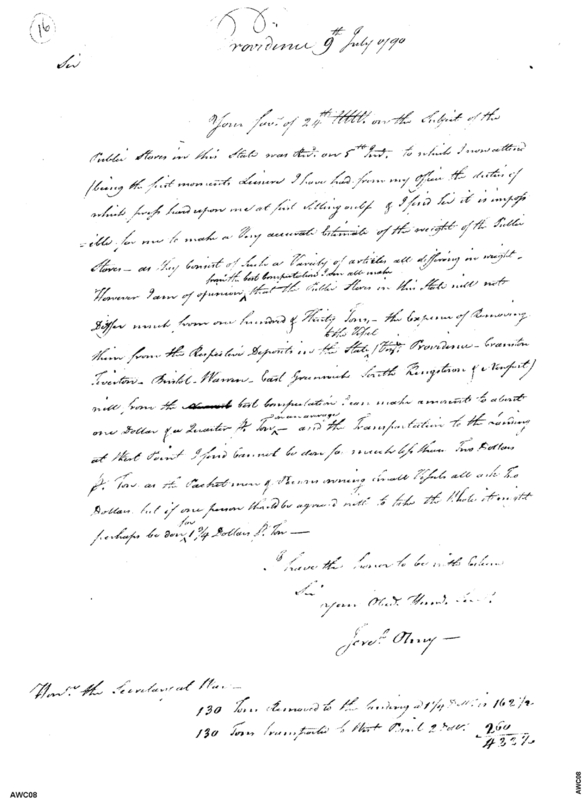 16
Providence 9th July 1790
Sir
Your favr. of 24th on the Subject of the
Public Stores in this State was Recd. on 5th Inst. to which I now attend
(being the first moments Leisure I have had from my Office the duties of
which press hard upon me at first setting out) & I find Sir it is impos
=ible for me to make a Very accurate Estimate of the weight of the Public
Stores – as they Consist of such a Variety of articles all differing in weight –
from the best Computation I can all make
However I am of opinion that the Public Stores in this State will not
Differ much from one hundred & Thirty Tons, – the Expence of Removing
to the Vessel
them from the Respective Deposits in the State, (Vizt. Providence – Cranston
Tiverton – Bristol – Warren – East Greenwich South Kingstown & Newport)
will, from the best Computation I can make amounts to about
on an average
one Dollar & a Quarter P Ton, – and the Transportation to the Landing
at West Point I find Cannot be don for much less than Two Dollars
P. Ton as the Packet men & Persons owning Small Vessels all ask Two
Dollars but if one person should be agreed with to take the Whole it might
for
perhaps be don 1 3/4 Dollars P. Ton –
I have the honor to be with Esteem
Sir
Your Obedt. Humb. Servt.
Jereh. Olney –
Honr. the Secretary at War –
130 Tons Removed to the landing a 1 1/4 Dollr. is 162 1/2
130 Tons transported to West Point 2 Dollr. 260
AWC08
AWC08